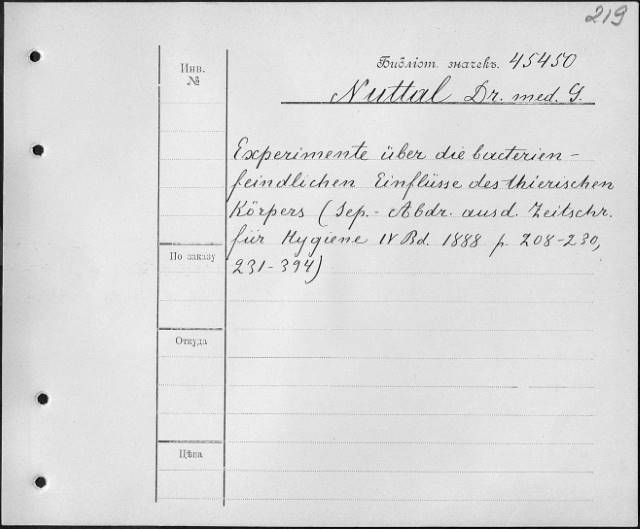 219
Инв.
№
Библіот. значекъ. 45450
Nuttal Dr. med. G.
Experimente über die bacterien-
feindlichen Einflüsse des thierischen
Körpers (Sep.- Abdr. aus d. Zeitschr.
für Hygiene IV Bd. 1888 p. 208-230,
231-394)
По заказу
Откуда
Цѣна